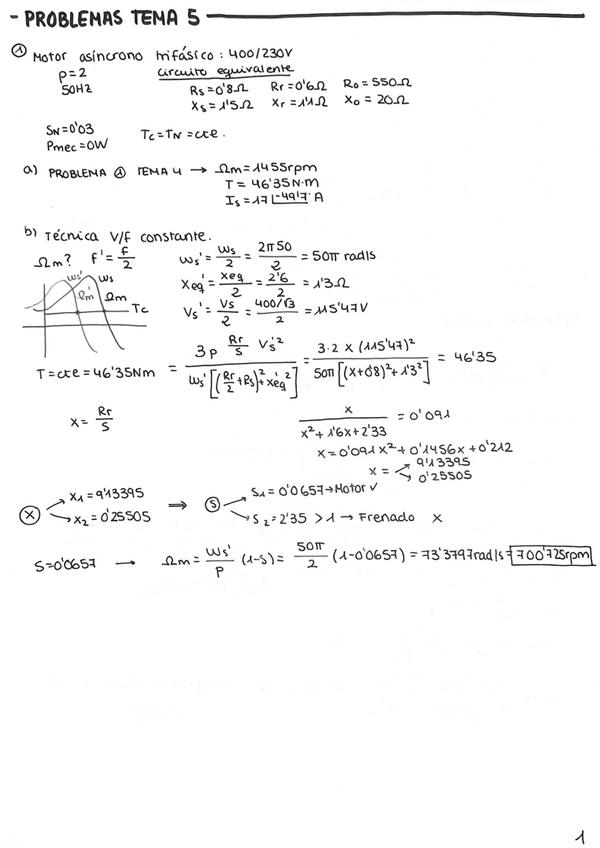 - PROBLEMAS TEMA 5
① Motor asíncrono trifásico: 400/230V
p=2 Circuito equivalente
50HZ Rs=0'8Ω Rr=0'6Ω Ro=550Ω
Xs=1'5Ω Xr=1'1Ω Xo=20Ω
SN=0'03 Tc=TN=cte.
Pmec=0W
a) PROBLEMA ① TEMA 4 → Ωm=1455rpm
T=46'35N·m
Is=17∟-49'7° A
b) Técnica V/f constante.
Ωm? f'=f/2 ws'=ws/2=2π50/2=50π rad/s
ws' ws
Ωm' Ωm
Tc
Xeq'=Xeq/2=2'6/2=1'3Ω
Vs'=Vs/2=(400/√3)/2=115'47V
T=cte=46'35Nm = 3p Rr/s Vs'² / ws'[(Rr/2+Rs)²+Xeq'²] = 3·2 x (115'47)² / 50π[(x+0'8)²+1'3²] = 46'35
x=Rr/s
x/(x²+1'6x+2'33)=0'091
x=0'091x²+0'1456x+0'212
x= 9'13395
0'25505
Ⓧ x1=9'13395 ⇒ Ⓢ S1=0'0657→Motor ✓
x2=0'25505 S2=2'35 >1 → Frenado X
S=0'0657 → Ωm=ws'/p (1-s)=50π/2 (1-0'0657)=73'3797rad/s=700'725rpm
1